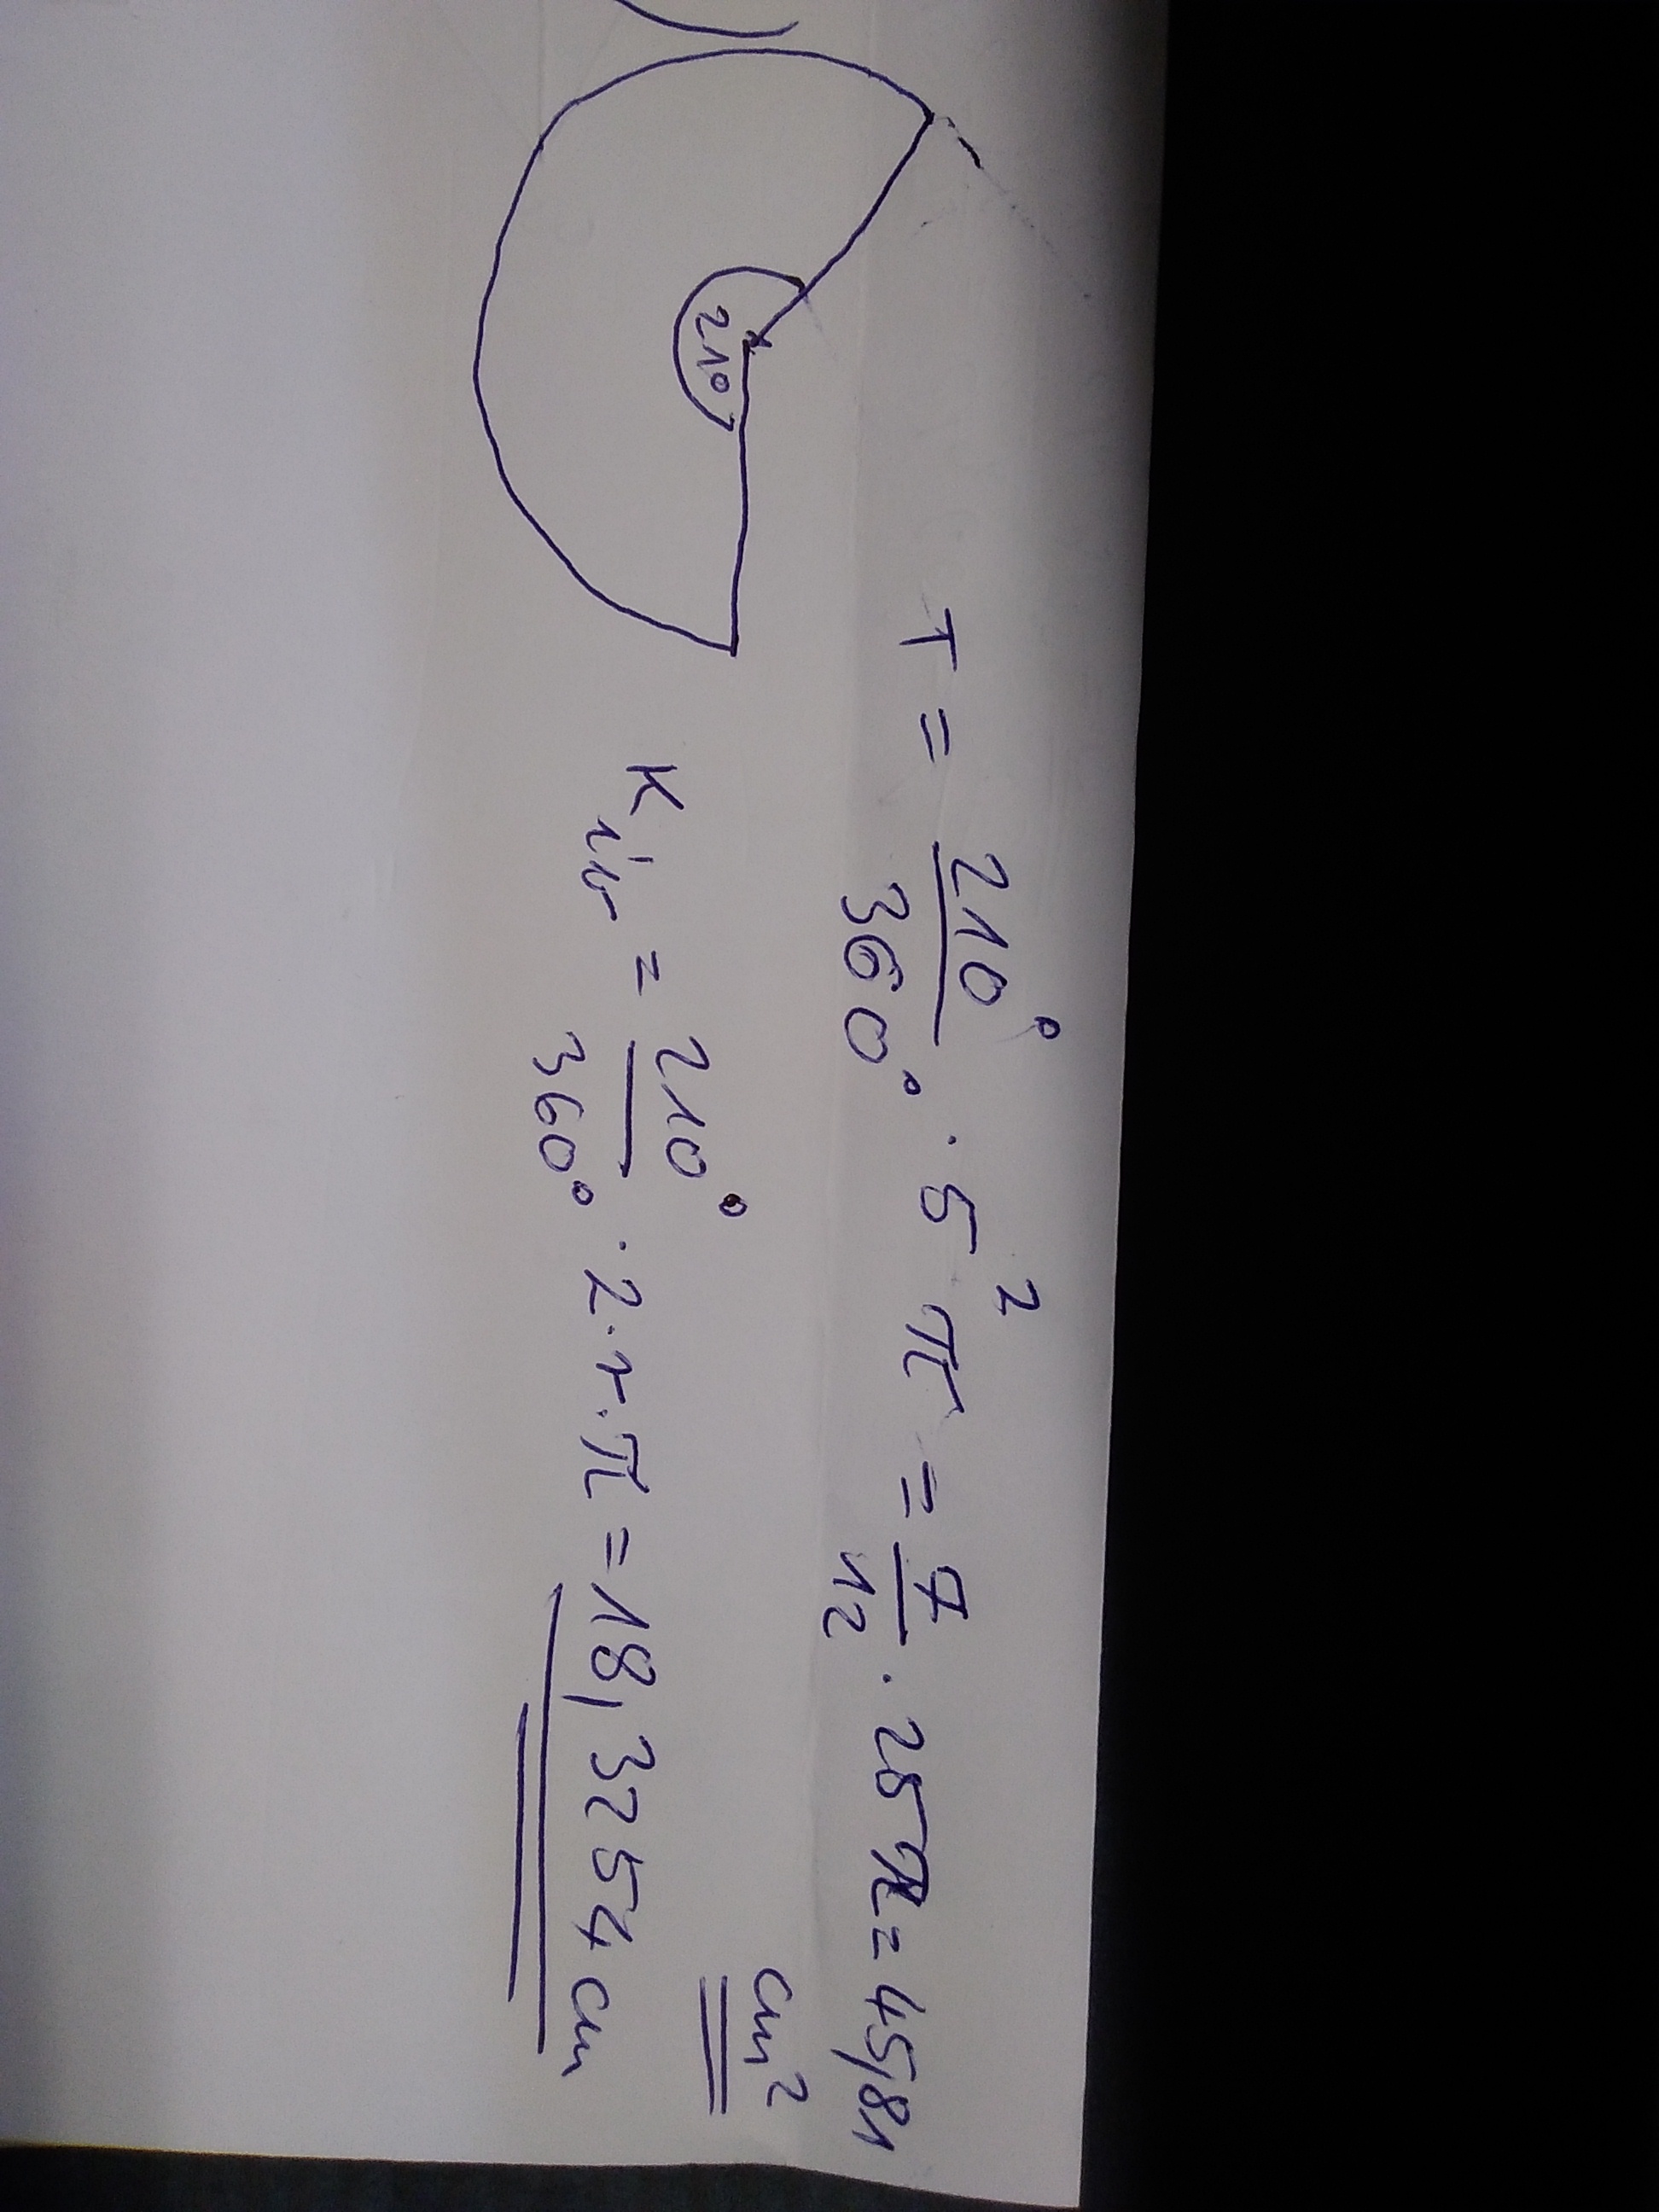 T = 210° / 360° · 5² π = 7/12 · 25π = 45,81
cm²
210°
Kív = 210° / 360° · 2·r·π = 18,3254 cm